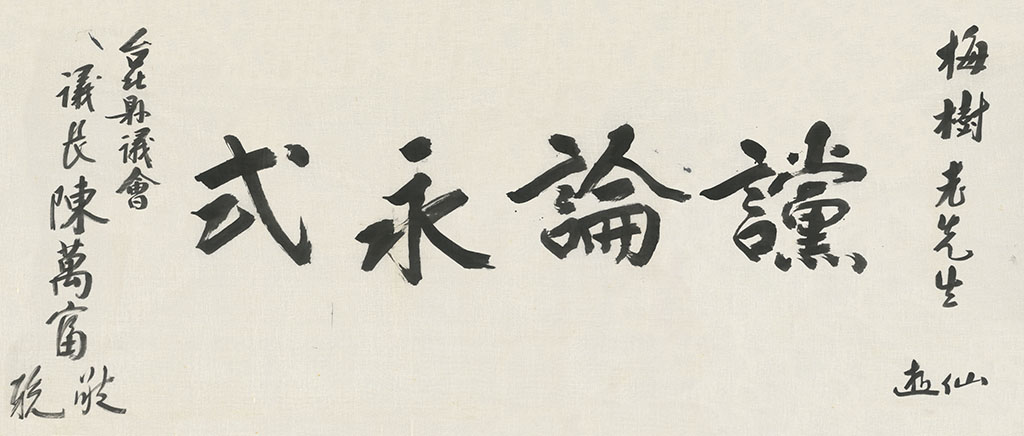 梅樹老先生
仙逝
讜論永式
台北縣議會
議長陳萬富
敬輓